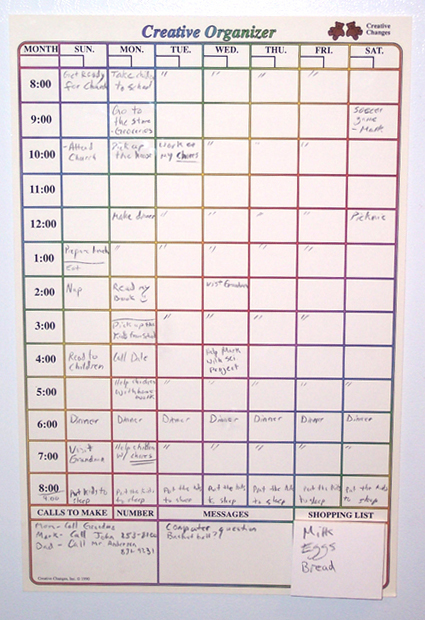 Creative Organizer
Creative
Changes
MONTH SUN. MON. TUE. WED. THU. FRI. SAT.
8:00 Get Ready for Church Take to school " " " "
9:00 Go to the store - Groceries Soccer game - Mark
10:00 - Attend Church Pick up the house Work on my chores " " "
11:00
12:00 Make dinner " " " " Picnic
1:00 Prepare Eat " " " " "
2:00 Nap Read my Book Visit Grandma
3:00 Pick up the kids from school " " " "
4:00 Read to Children Call Dale Help Mark with Sci project
5:00 Help children with home work " " " " "
6:00 Dinner Dinner Dinner Dinner Dinner Dinner Dinner
7:00 Visit Grandma Help children w/ chores " " " "
8:00 Put kids to sleep Put the kids to sleep Put the kids to sleep Put the kids to sleep Put the kids to sleep Put the kids to sleep Put the kids to sleep
9:00
CALLS TO MAKE NUMBER MESSAGES SHOPPING LIST
Mom - Call Grandma
Mark - Call John
Dad - Call Mr.
Computer question
Basketball?
Milk
Eggs
Bread
Creative Changes, Inc. ©